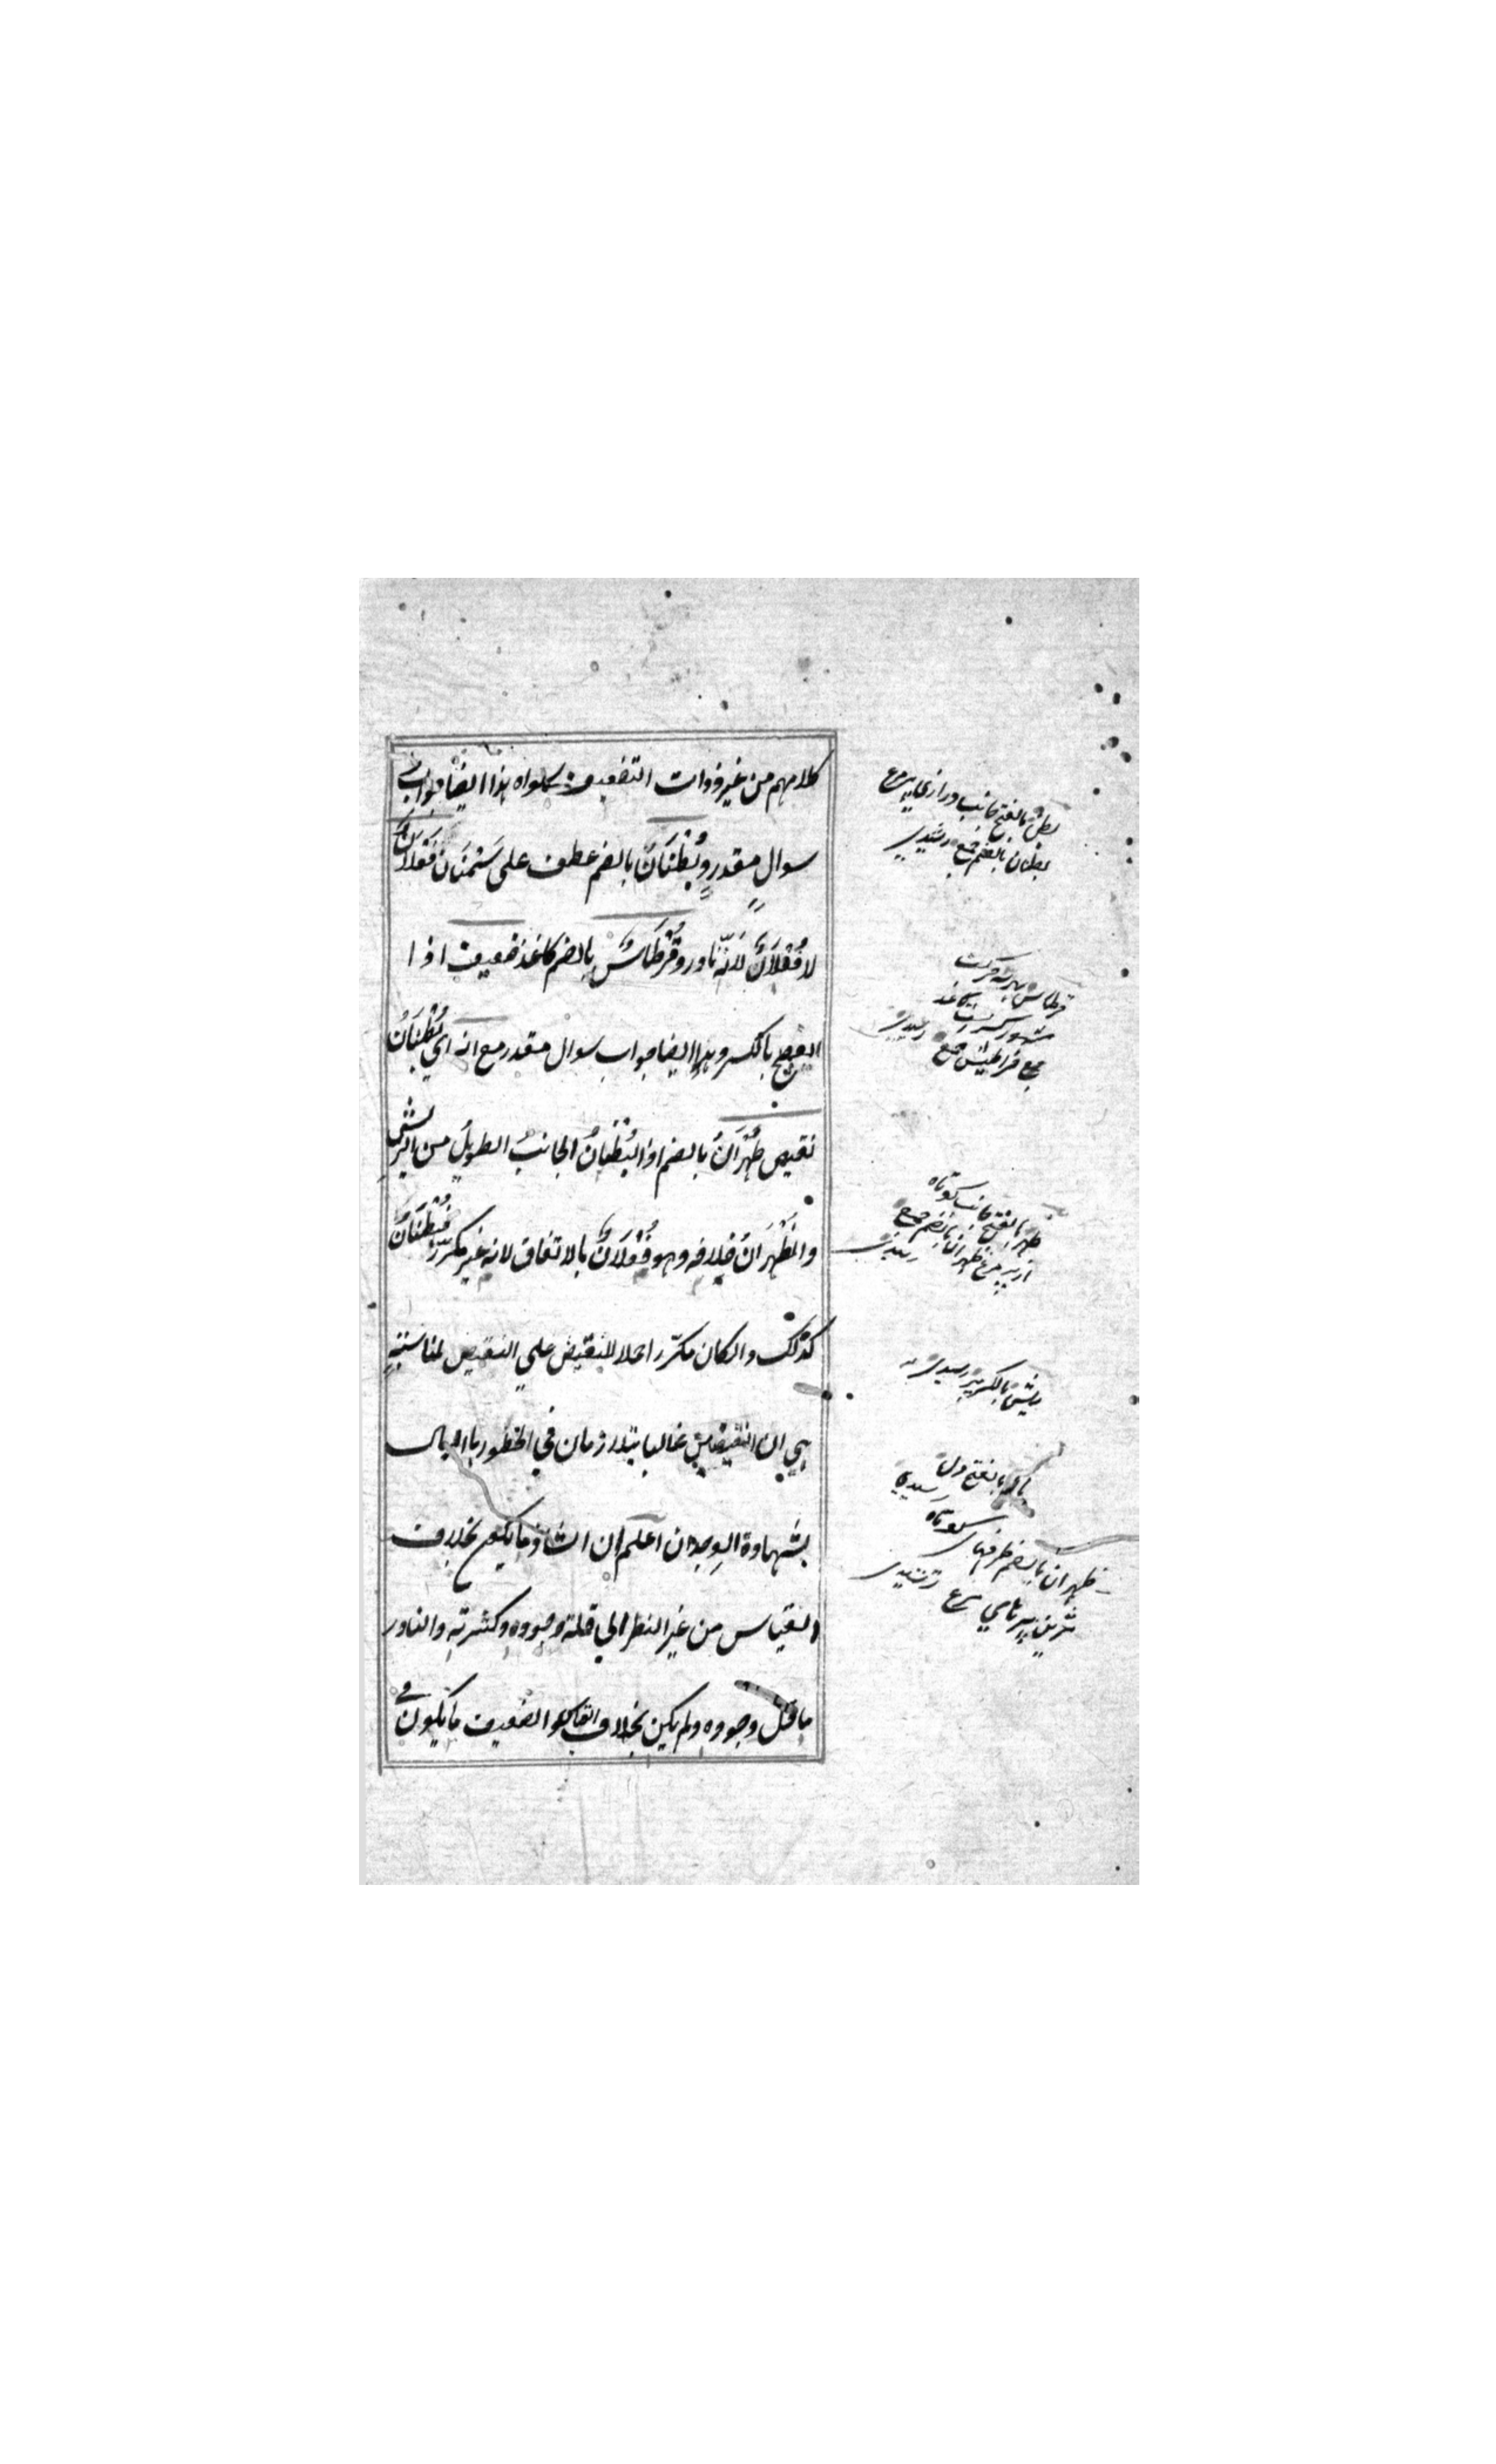 كلامهم من غير ذوات التضعيف سواه هذا ايضا جواب
سوالٍ مقدرٍ وبُطْنَانٌ بالضم عطف على سَمْنَان فَعْلَانٌ
لا فُعْلَالٌ لانّه نادر وقُرْطَاسٌ بالضم كاغذ ضعيف اذا
الفصيح بالكسر وهذا ايضا جواب سوال مقدر مع انه اي بُطْنَانٌ
نقيض ظُهْرَانٌ بالضم اذ البُطْنَانُ الجانبُ الطويلُ من الريش
والظُهْرَانُ خلافه وهو فُعْلَانٌ بالاتفاق لانه غير مكرّر فبُطْنَانٌ
كذلك وان كان مكرّرا حملا للنقيض على النقيض لمناسبةٍ
هي ان النقيضين غالبا يتلازمان في الخطور بالبال
بشهادة الوجدان اعلم ان الشاذ ما يكون بخلاف
القياس من غير النظر الي قلة وجوده وكثرته والنادر
ما قل وجوده ولم يكن بخلاف القياس والضعيف ما يكون في
بطن بالفتح جانب دراز پر مرغ
بطنان بالضم جمع رشيدي
قرطاس بهر سه حركت
مشهور كاغذ
قراطيس جمع
ظهر بالفتح جانب كوتاه
از پر مرغ ظهران بالضم جمع
ريش بالكسر پر رشيدي
بال بالفتح دل رشيدي
ظهران بالضم طرفهاي كوتاه
ترين پرهاي مرغ رشيدي